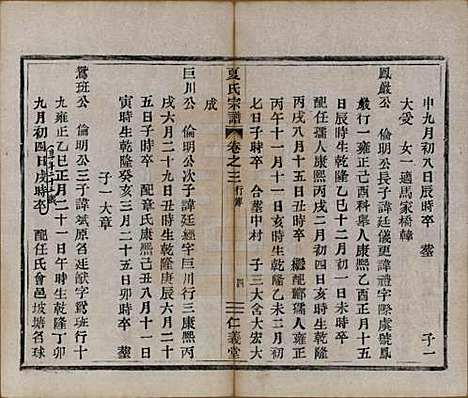 申九月初八日辰時卒 葬 子一
大受 女一適馬家橋韓
鳳嚴公 倫明公長子諱廷儀更諱禮字際虞號鳳
嚴行一雍正乙酉科舉人康熙乙酉正月十五
日辰時生乾隆乙丑十二月初一日未時卒
配任孺人康熙丙戌二月初四日亥時生雍正
丙戌八月十五日丑時卒 繼配酈孺人雍正
丙午十一月初十日亥時生乾隆乙未二月初
七日子時卒 合葬中村 子三大含大宏大
成
夏氏宗譜 卷之三 行傳 四 仁義堂
巨川公 倫明公次子諱廷經字巨川行三康熙丙
戌六月二十九日丑時生乾隆庚辰六月二十
五日子時卒 配章氏康熙己丑八月十一日
寅時生乾隆癸亥三月二十五日卯時卒 葬
子一大章
鴛班公 倫明公三子諱斌原名廷猷字鴛班行十
九雍正乙巳正月二十一日午時生乾隆丁卯
九月初四日戌時卒 配任氏會邑坡塘名球